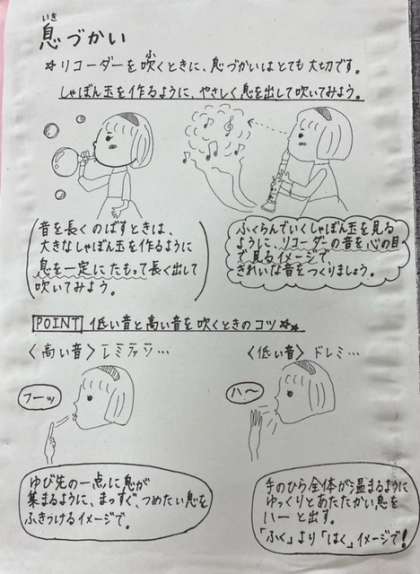 いき
息づかい
☆リコーダーを吹くときに、息づかいはとても大切です。
ふ
しゃぼん玉を作るように、やさしく息を出して吹いてみよう。
音を長くのばすときは、
大きなしゃぼん玉を作るように
息を一定にたもって長く出して
吹いてみよう。
ふくらんでいくしゃぼん玉を見る
ように、リコーダーの音を心の目
で見るイメージで、
きれいな音をつくりましょう。
POINT 低い音と高い音を吹くときのコツ☆☆
〈高い音〉レミファソ…
〈低い音〉ドレミ…
フーッ
ハ〜
ゆび先の一点に息が
集まるように、まっすぐ、つめたい息を
ふきつけるイメージで。
手のひら全体が温まるように
ゆっくりとあたたかい息を
ハーと出す。
「ふく」より「はく」イメージで!